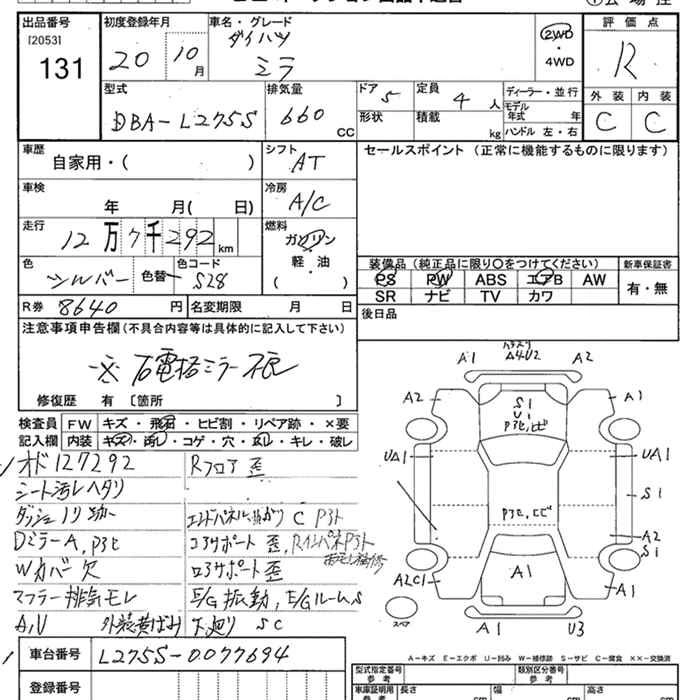 出品番号
[2053]
131
初度登録年月
20 10月
車名・グレード
ダイハツ
ミラ
2WD
・
4WD
評価点
R
外装 内装
C C
型式
DBA-L275S
排気量
660 CC
ドア 5
定員 4 人
形状
積載 kg
ディーラー・並行
モデル年式 年
ハンドル 左・右
車歴
自家用・( )
シフト
AT
セールスポイント (正常に機能するものに限ります)
車検
年 月( 日)
冷房
A/C
走行
12万7千292km
燃料
ガソリン
軽・油
( )
色
シルバー
色替
色コード
S28
装備品 (純正品に限り○をつけてください)
新車保証書
PS PW ABS エアB AW
有・無
SR ナビ TV カワ
R券 8640 円
名変期限 月 日
後日品
注意事項申告欄(不具合内容等は具体的に記入して下さい)
※右電格ミラー不良
修復歴 有 [箇所 ]
検査員
記入欄
FW キズ・飛石・ヒビ割・リペア跡・×要
内装 キズ・汚レ・コゲ・穴・スレ・キレ・破レ
オド127292
Rフロア 歪
シート汚レヘタリ
ダッシュノリ跡
C P3ト
DミラーA,P3ヒ
コアサポート 歪
Wカバー欠
ロアサポート 歪
マフラー排気モレ
E/G振動,E/GルームS
A,U
外装黄ばみ
下廻り SC
A1
A4U2
A2
A2
S1
U1
P3ヒ,ヒビ
A1
UA1
UA1
S1
P3ヒ,ヒビ
A2
S1
A2C1
A1
A1
スペア
A1
U3
車台番号
L275S-0077694
登録番号
A-キズ E-エクボ U-凹み W-補修跡 S-サビ C-腐食 ××-交換済
型式指定番号
参考
類別区分番号
参考
車庫証明用
参考
長さ cm
幅 cm
高さ cm